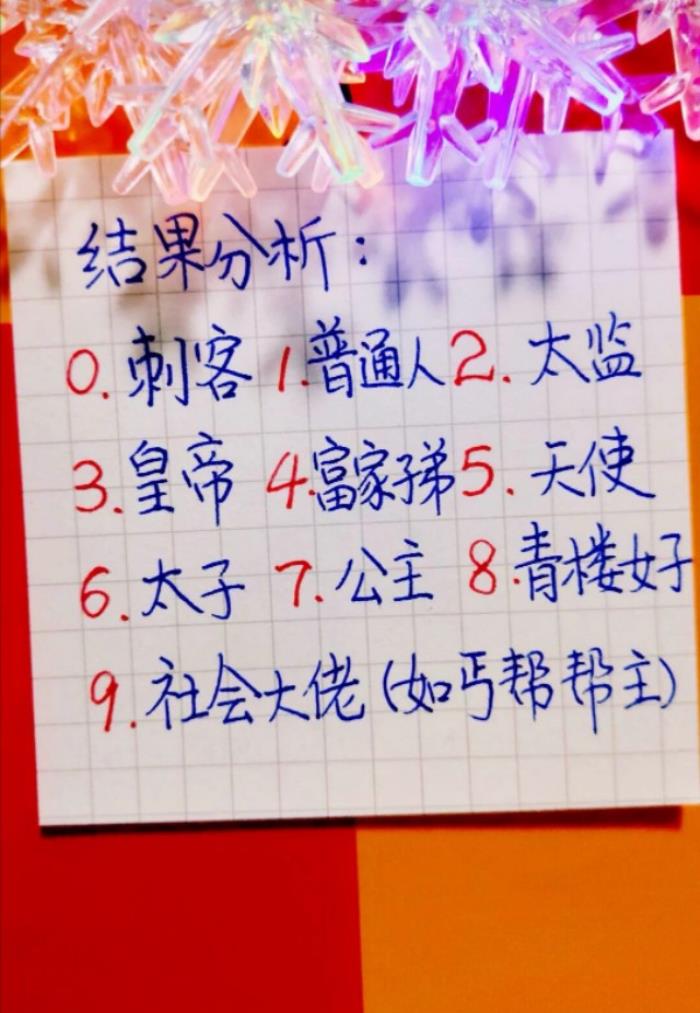 结果分析：
0. 刺客 1. 普通人 2. 太监
3. 皇帝 4. 富家子弟 5. 天使
6. 太子 7. 公主 8. 青楼女子
9. 社会大佬（如丐帮帮主）